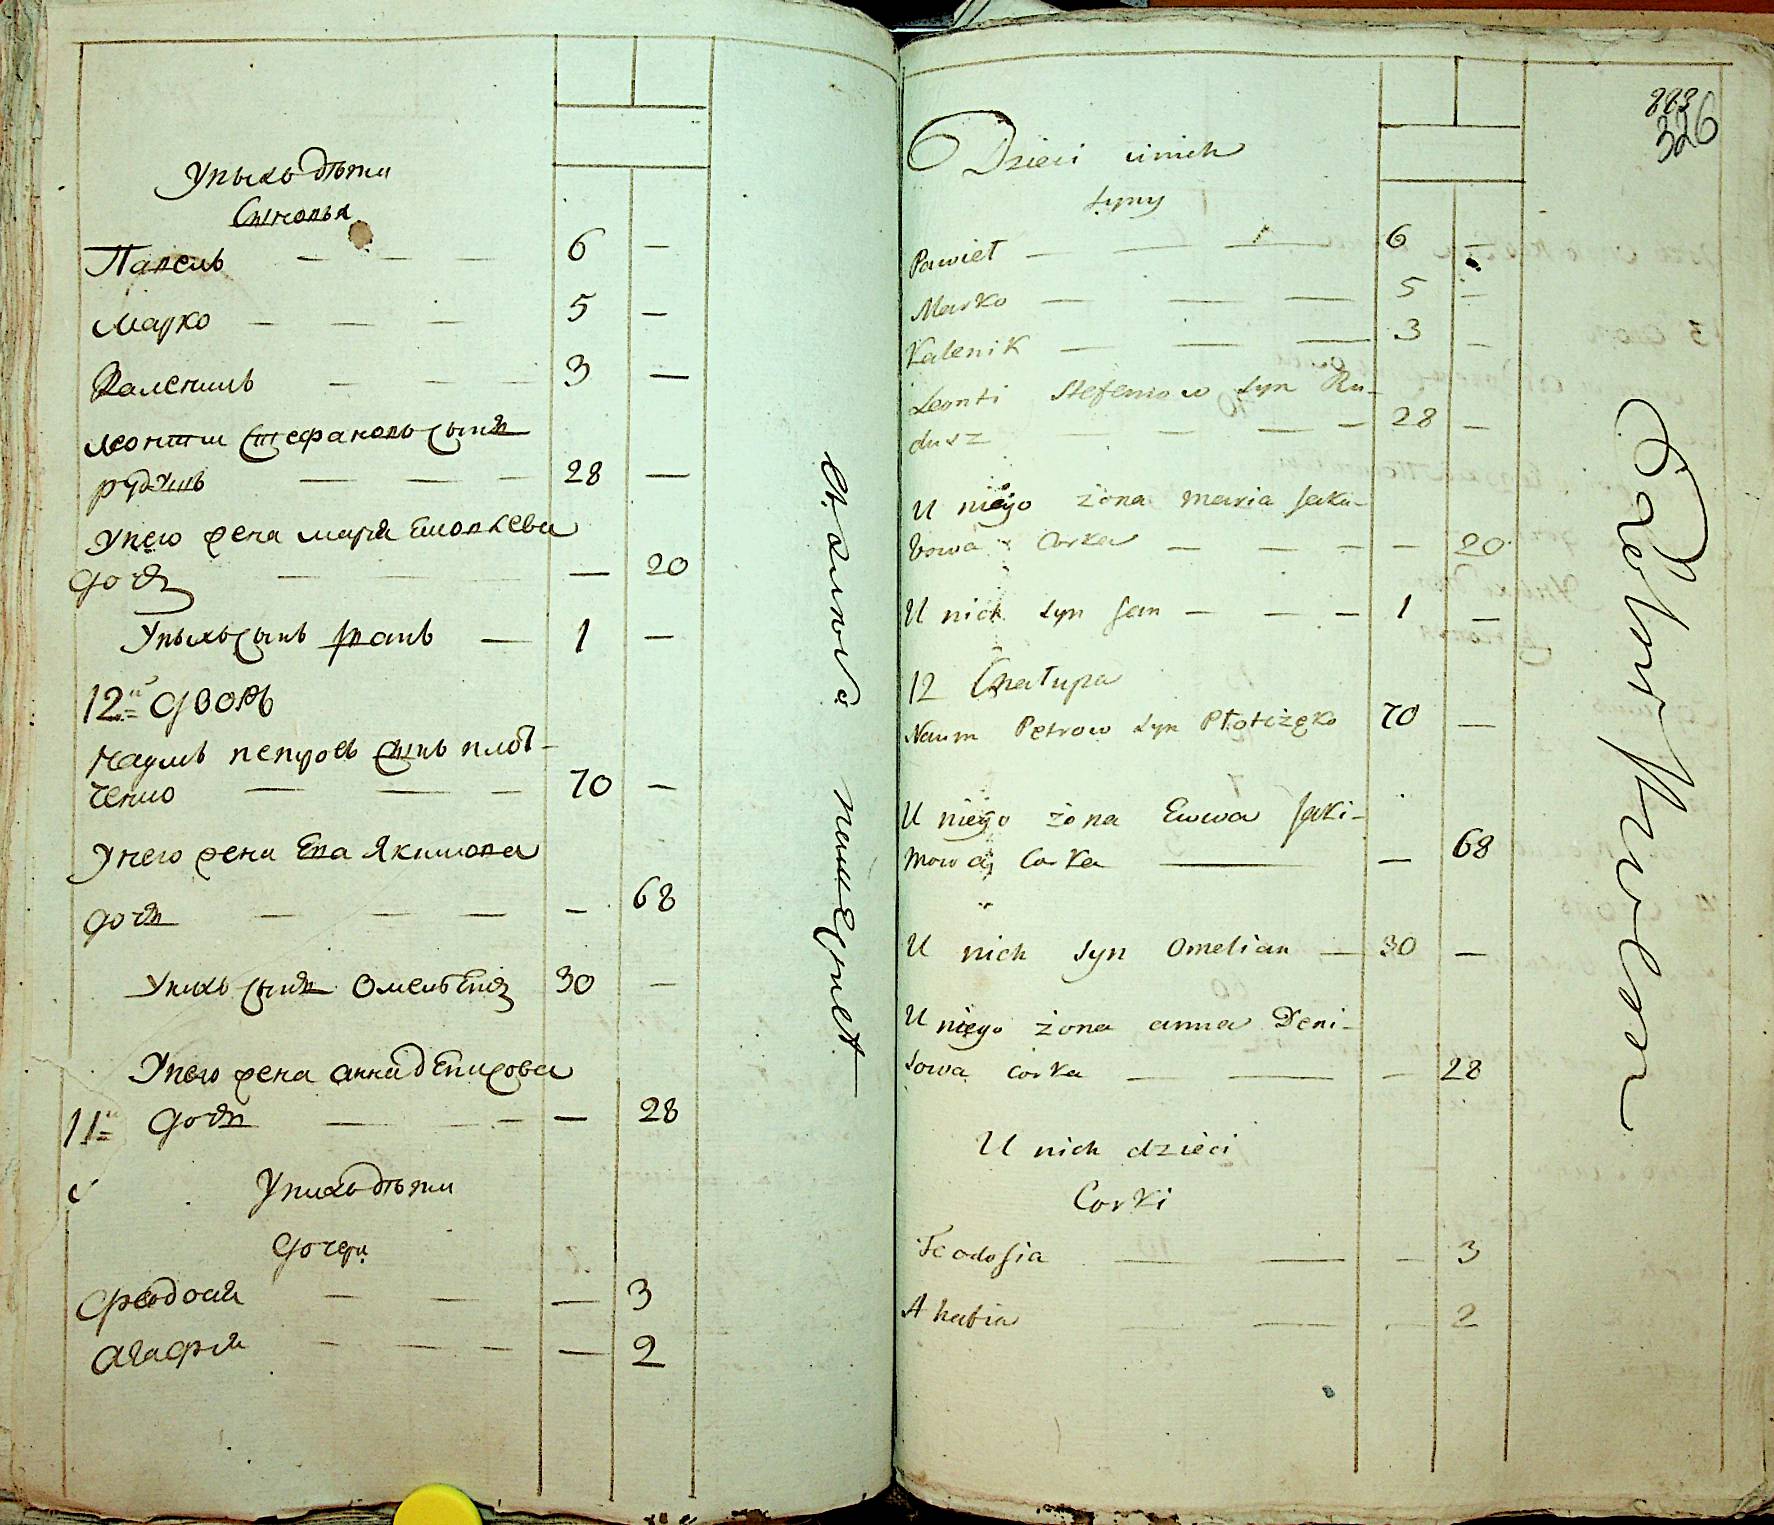 Унихъ дѣти
Сыновья
Павелъ — — — 6 —
Марко — — — 5 —
Каленикъ — — — 3 —
Леонтий Стефановъ сынъ
рудишъ — — — 28 —
Унего жена Мария
дочь — — — — 20
Унихъ сынъ Иванъ — 1 —
12й дворъ
Наумъ Петровъ сынъ плот-
ченко — — — 70 —
Унего жена Ева Якимова
дочь — — — — 68
Унихъ сынъ Омельянъ 30 —
Унего жена анна денисова
11й дочь — — — 28
Унихъ дѣти
дочери
Феодосия — — — 3
агафия — — — — 2
323
326
Dzieci u nich
Syny
Paweł — — — 6 —
Marko — — — 5 —
Kalenik — — — 3 —
Leonti Stefanow Syn Ru-
dusz — — — — 28 —
U niego żona Maria Jaku-
bowa Corka — — — — 20
U nich Syn Jan — — — 1 —
12 Chałupa
Naum Petrow Syn Płotczęko 70 —
U niego żona Ewwa Jaki-
mowa Corka — — 68
U nich Syn Omelian — 30 —
U niego żona anna Deni-
sowa Corka — — — 28
U nich dzieci
Corki
Teodosia — — — 3
Ahafia — — — 2